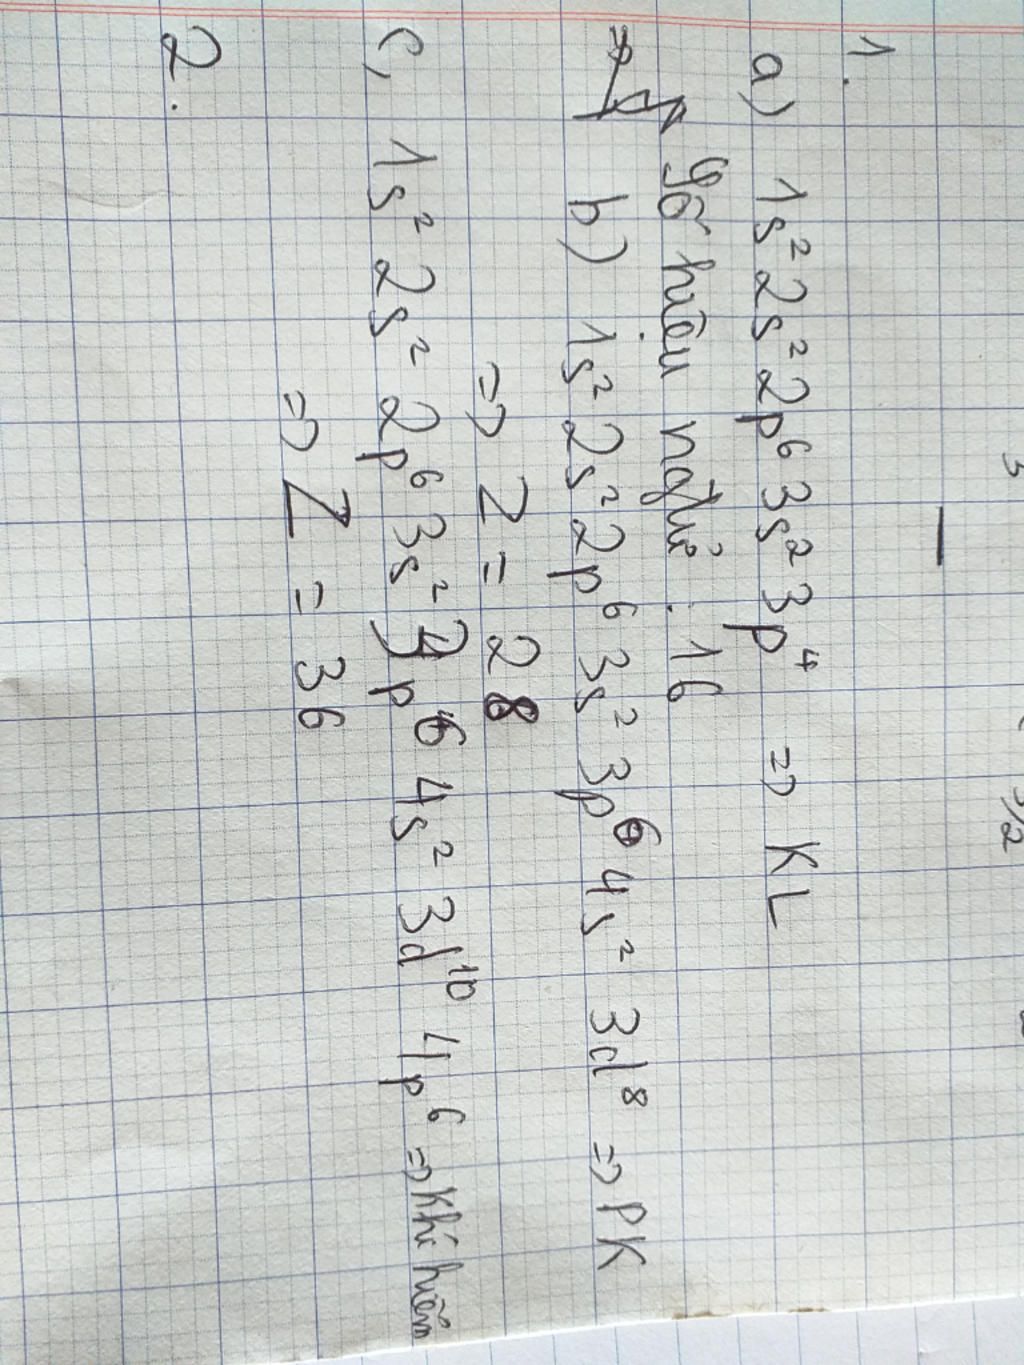 1.
a) 1s² 2s² 2p⁶ 3s² 3p⁴ => KL
Số hiệu ngtử : 16
b) 1s² 2s² 2p⁶ 3s² 3p⁶ 4s² 3d⁸ => PK
=> Z = 28
c, 1s² 2s² 2p⁶ 3s² 3p⁶ 4s² 3d¹⁰ 4p⁶ => Khí hiếm
=> Z = 36
2.